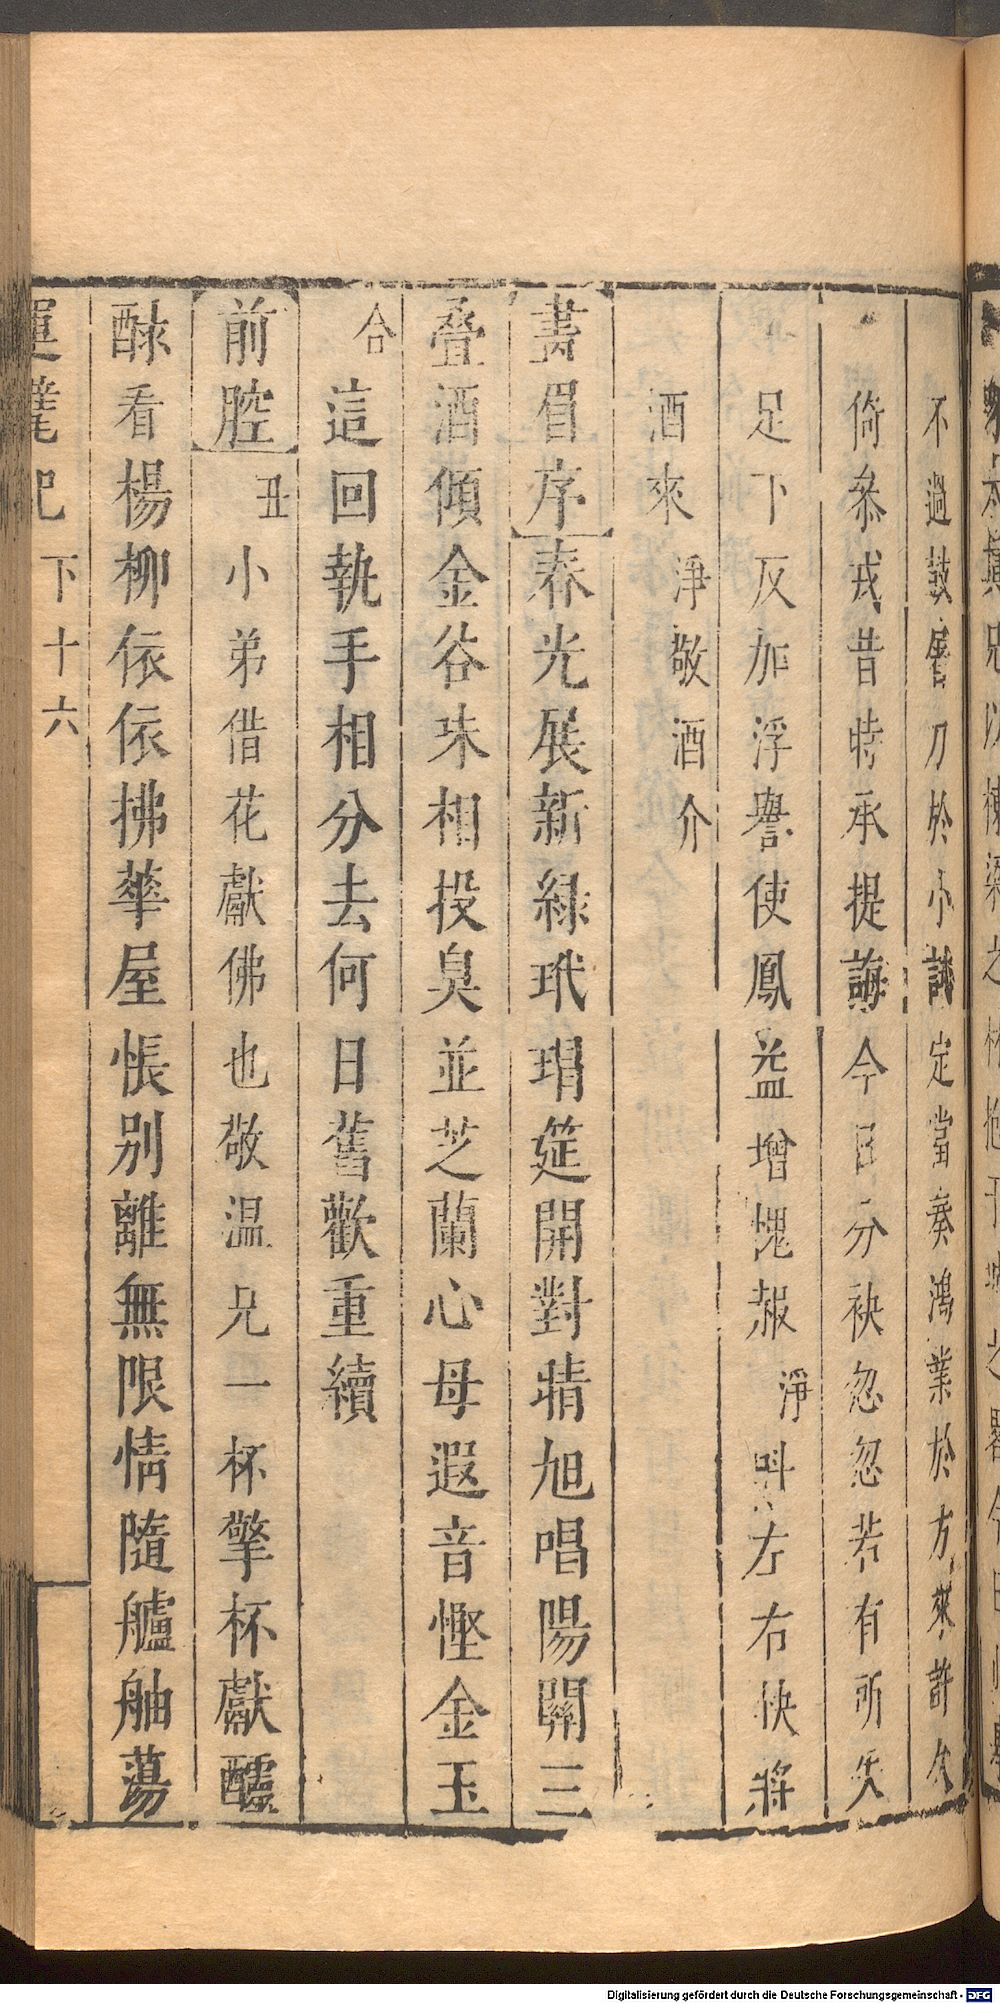 不過鼓舊刀於小試定當奏鴻業於方來許久
倚叅戎昔時承提誨今日分袂忽忽若有所失
足下反加浮譽使鳳益增愧赧淨呌左右快將
酒來淨敬酒介
畫眉序春光展新綠玳瑁筵開對晴旭唱陽關三
叠酒傾金谷珠相投臭並芝蘭心母遐音慳金玉
合這回執手相分去何日舊歡重續
前腔丑小弟借花獻佛也敬温兄一杯擎杯獻醽
醁看楊柳依依拂華屋悵别離無限情隨艫舳蕩
運甓記
下十六
Digitalisierung gefördert durch die Deutsche Forschungsgemeinschaft - DFG